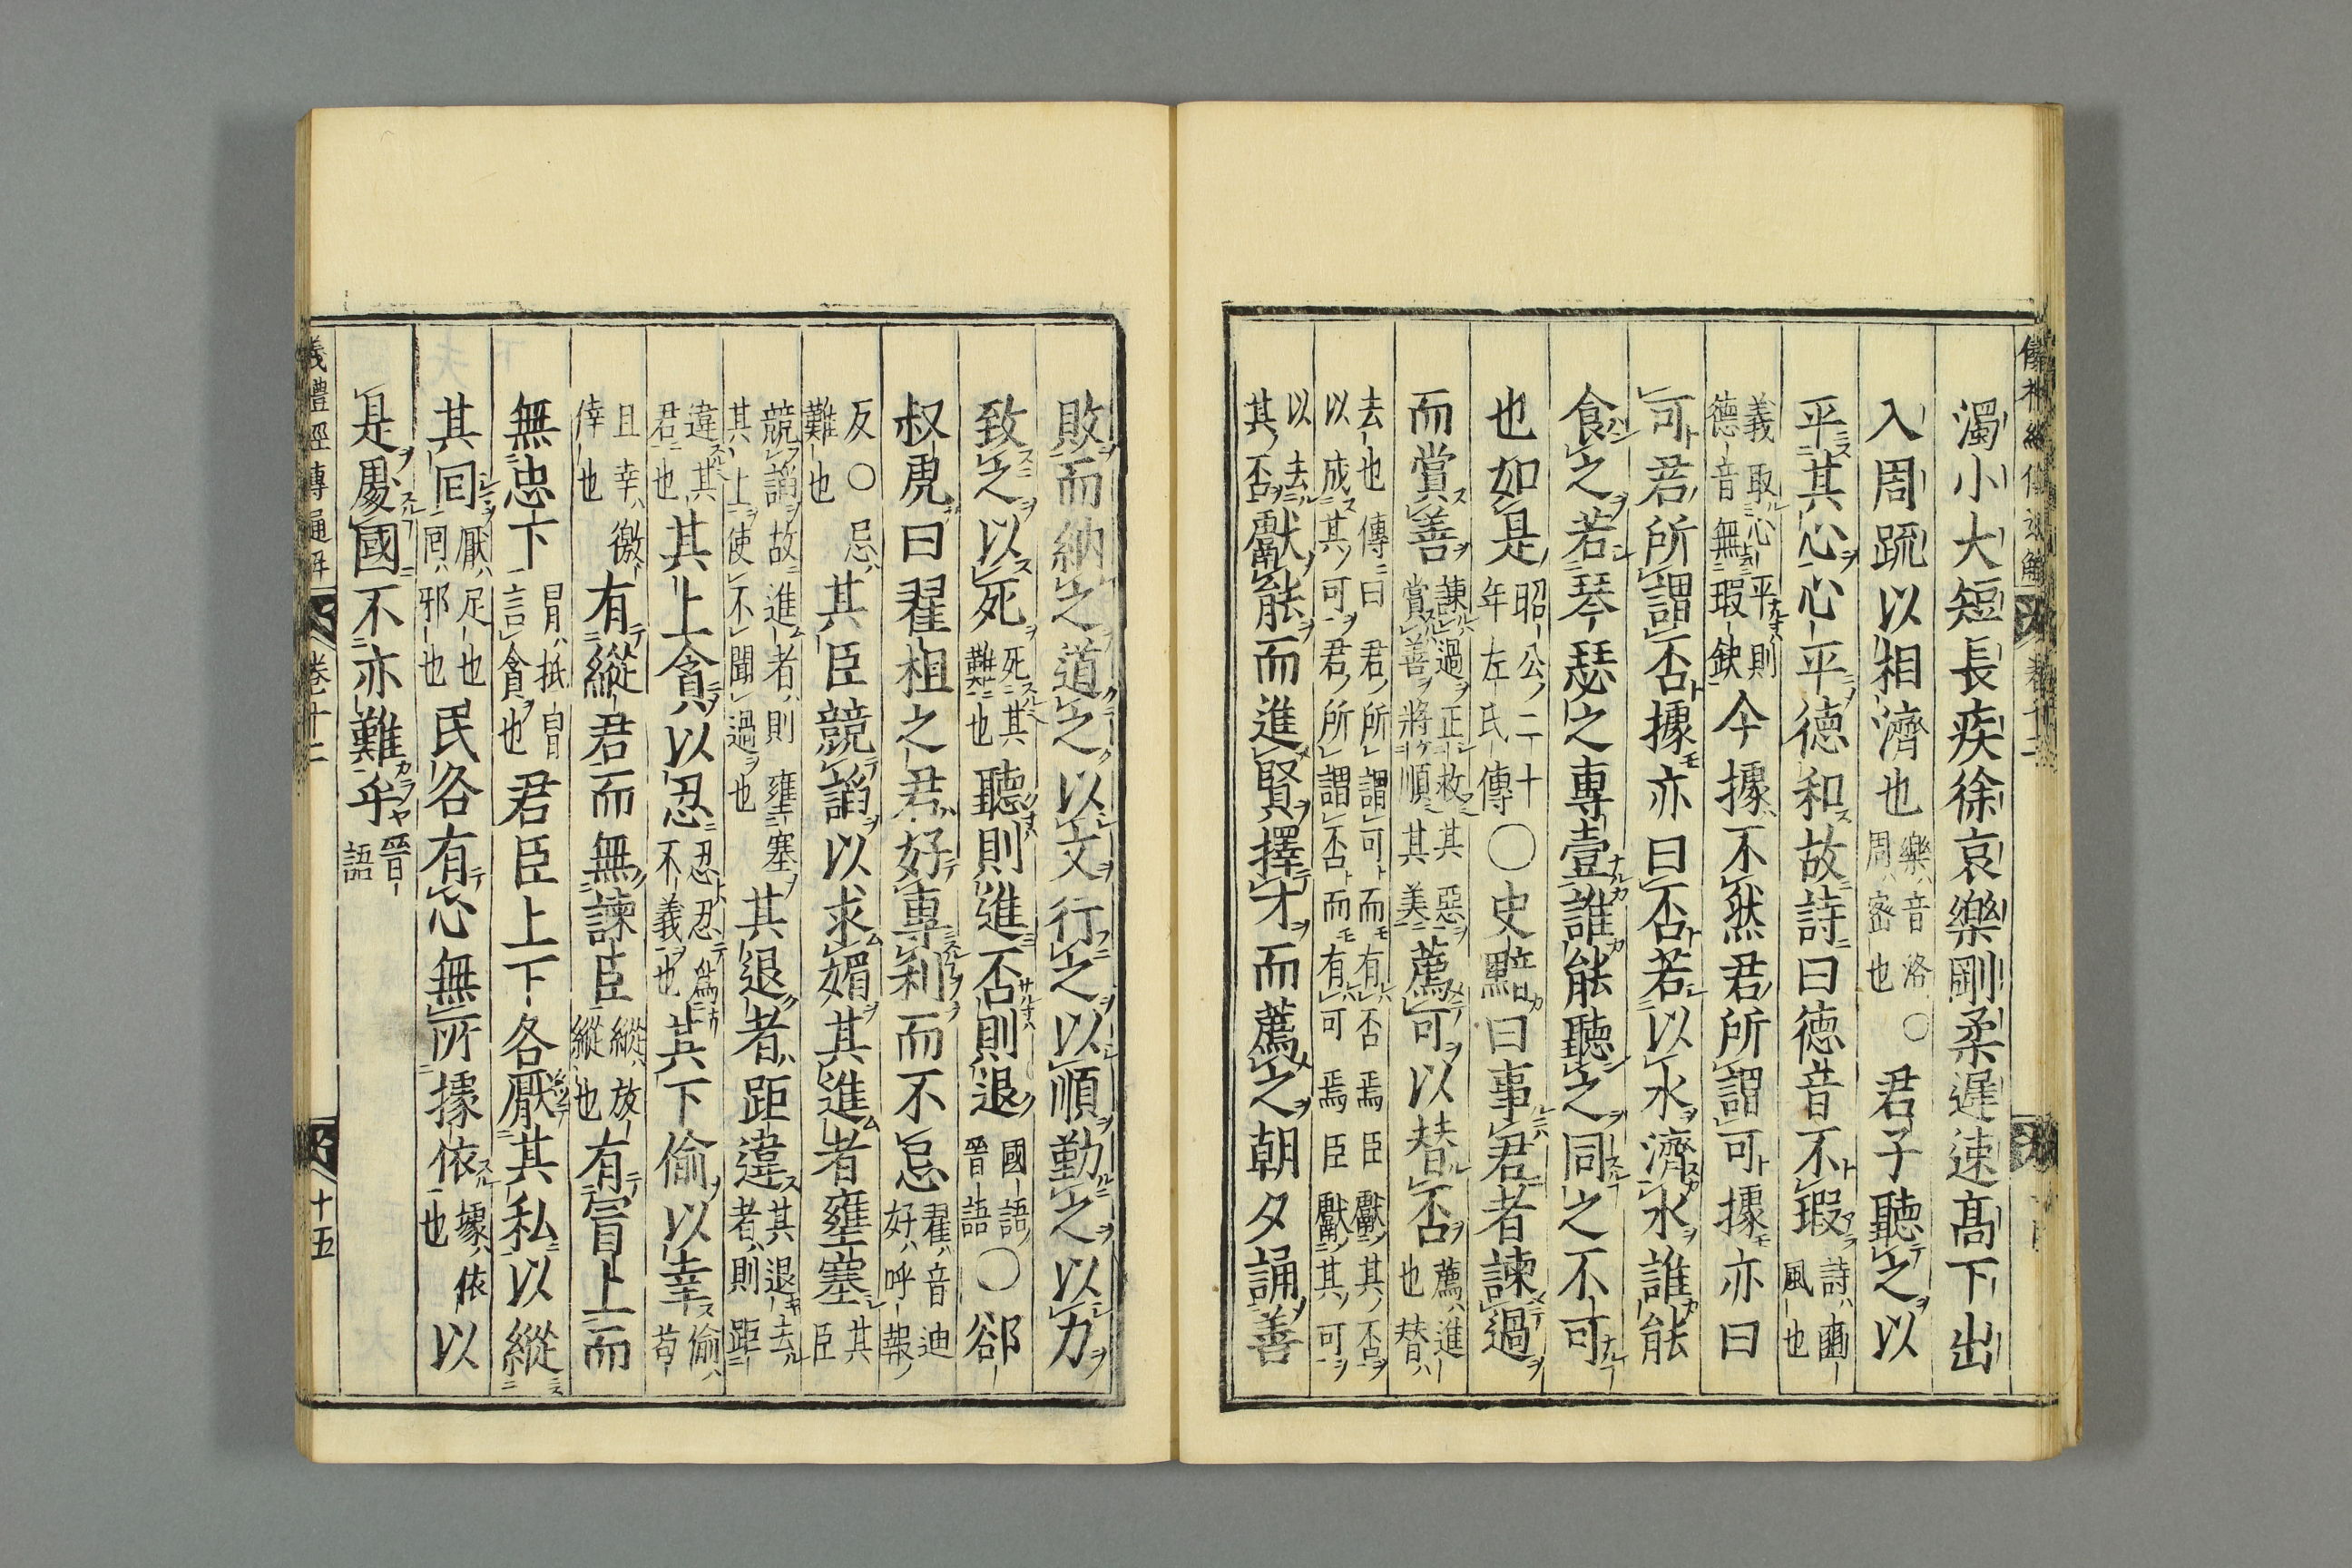 濁小大短長疾徐哀樂剛柔遲速髙下出
入周䟽以相濟也樂音洛周密也○君子聽之以
平其心心平德和故詩曰德音不瑕詩豳風也
義取心平則德音無瑕缺今據不然君所謂可據亦曰
可君所謂否據亦曰否若以水濟水誰能
食之若琴瑟之專壹誰能聽之同之不可
也如是昭公二十年左氏傳○史黯曰事君者諫過
而賞善諫過正救其惡賞善將順其美薦可以替否薦進也替
去也傳曰君所謂可而有否焉臣獻其否以成其可君所謂否而有可焉臣獻其可
以去其否獻能而進賢擇才而薦之朝夕誦善
敗而納之道之以文行之以順勤之以力
致之以死死其難也聽則進否則退國語晉語○郤
叔虎曰翟柤之君好專利而不忌翟音迪好呼報
反○忌難也其臣競諂以求媚其進者壅塞其臣
競諂故進者則壅塞其上使不聞過也其退者距違其退去者則距
違其君也其上貪以忍忍忍爲不義也其下偷以幸偷苟
且幸徼倖也有縱君而無諫臣縱放縱也有冐上而
無忠下冐抵冒言貪也君臣上下各厭其私以縱
其囘厭足也囘邪也民各有心無所據依據依也以
是處國不亦難乎晉語
義禮經傳通解
卷十二
十五